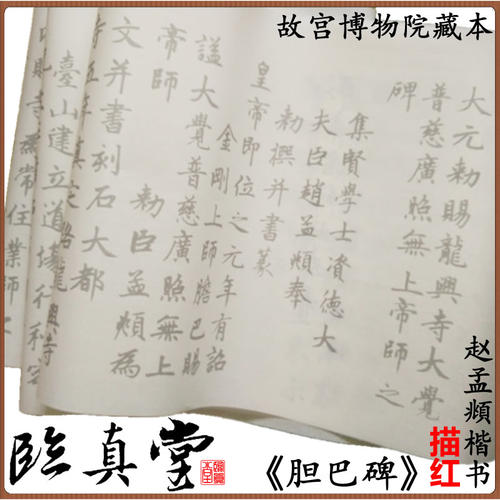 故宫博物院藏本
大元勑賜龍興寺大覺
普慈廣照無上帝師之
碑
集賢學士資德大
夫臣趙孟頫奉
勑撰并書篆
皇帝即位之元年有詔
金剛上師膽巴賜
謚大覺普慈廣照無上
帝師
勑臣孟頫為
文并書刻石大都
寺五年真路龍興寺
臺山建立道場行
寺為常住業師之
赵孟頫楷书
描红
《胆巴碑》
臨真堂